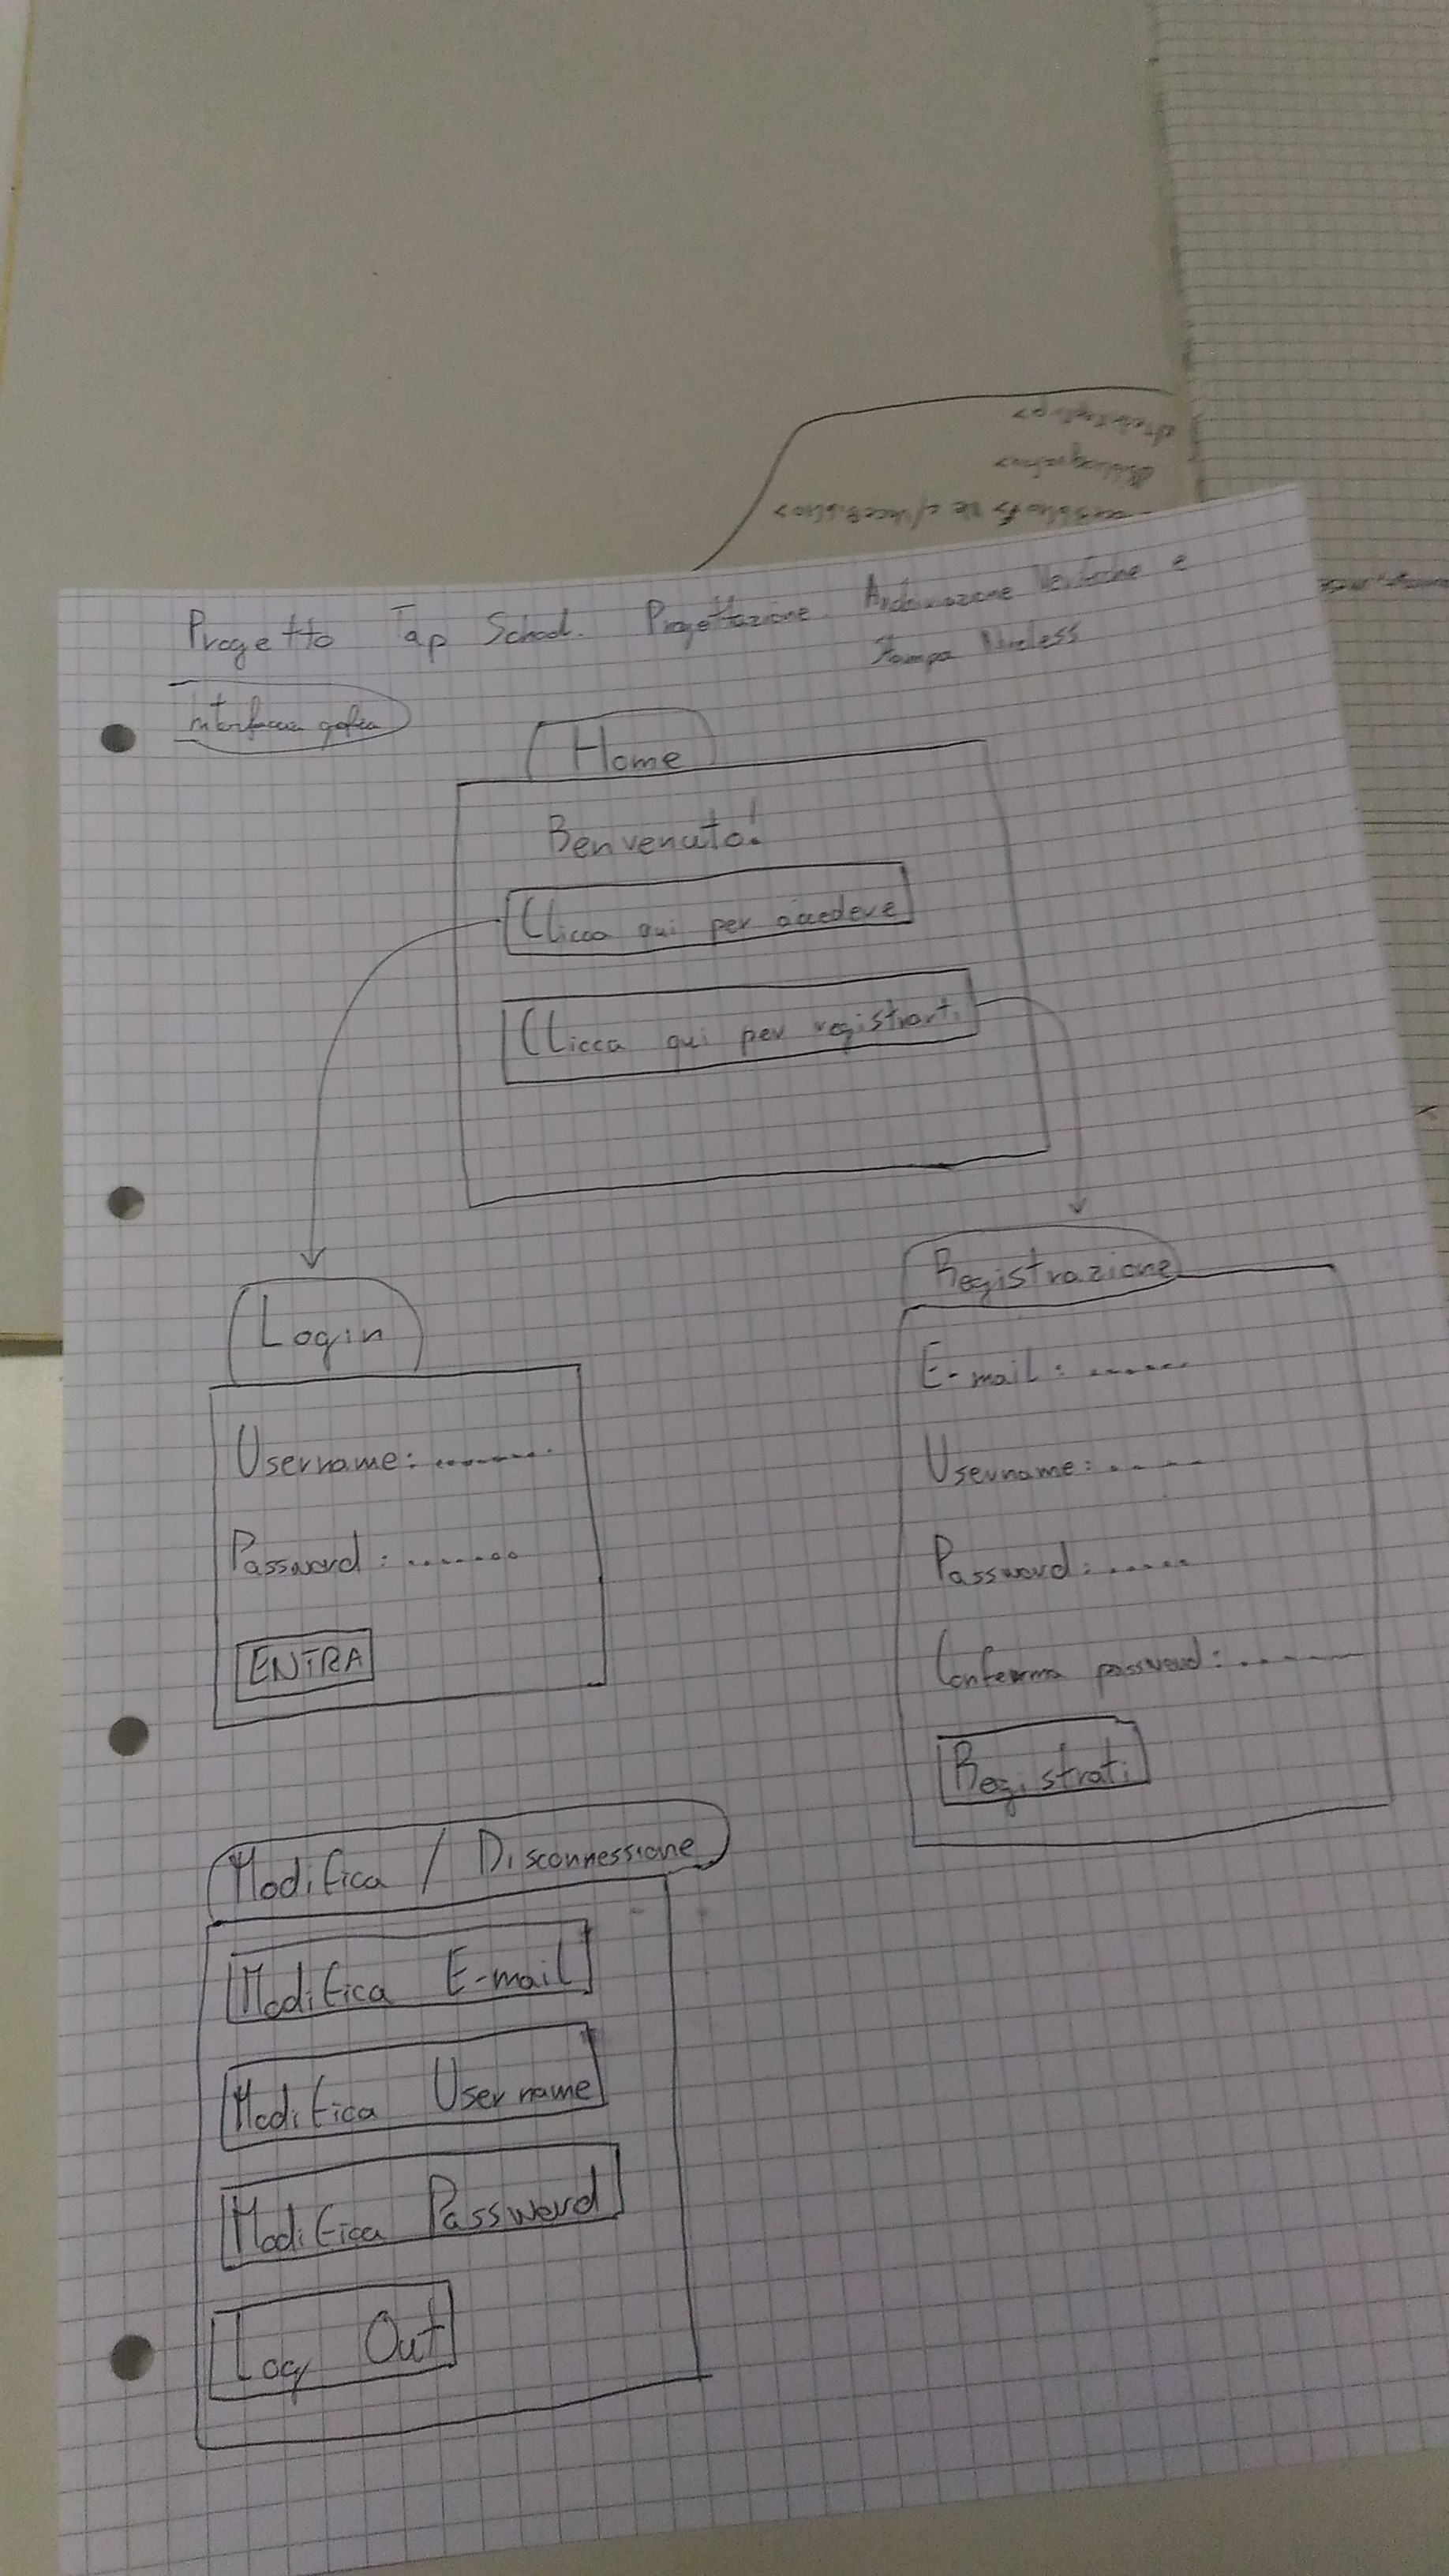 Progetto Tap School. Progettazione. Archiviazione Verifiche e
Stampa Wireless
Interfaccia grafica
Home
Benvenuto!
Clicca qui per accedere
Clicca qui per registrarti
Login
Username: ........
Password: .......
ENTRA
Registrazione
E-mail: ......
Username: .....
Password: .....
Conferma password: ......
Registrati
Modifica / Disconnessione
Modifica E-mail
Modifica Username
Modifica Password
Log Out